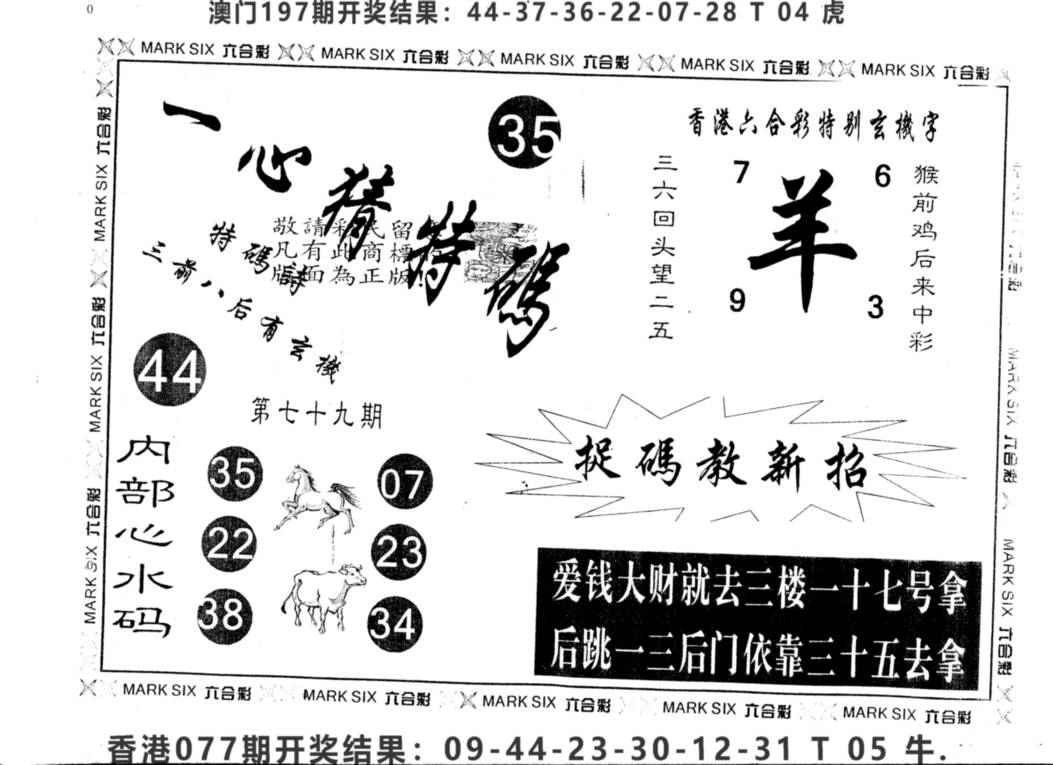 澳门197期开奖结果：44-37-36-22-07-28 T 04 虎
MARK SIX 六合彩 MARK SIX 六合彩 MARK SIX 六合彩 MARK SIX 六合彩 MARK SIX 六合彩
一心猜特碼
35
香港六合彩特别玄機字
三六回头望二五
7
6
羊
9
3
猴前鸡后来中彩
敬請彩民留
凡有此商標
版面為正版!
特碼詩
三前八后有玄機
44
第七十九期
捉碼教新招
内部心水码
35
07
22
23
38
34
爱钱大财就去三楼一十七号拿
后跳一三后门依靠三十五去拿
MARK SIX 六合彩 MARK SIX 六合彩 MARK SIX 六合彩
MARK SIX 六合彩 MARK SIX 六合彩
MARK SIX 六合彩 MARK SIX 六合彩 MARK SIX 六合彩 MARK SIX 六合彩 MARK SIX 六合彩
香港077期开奖结果：09-44-23-30-12-31 T 05 牛.